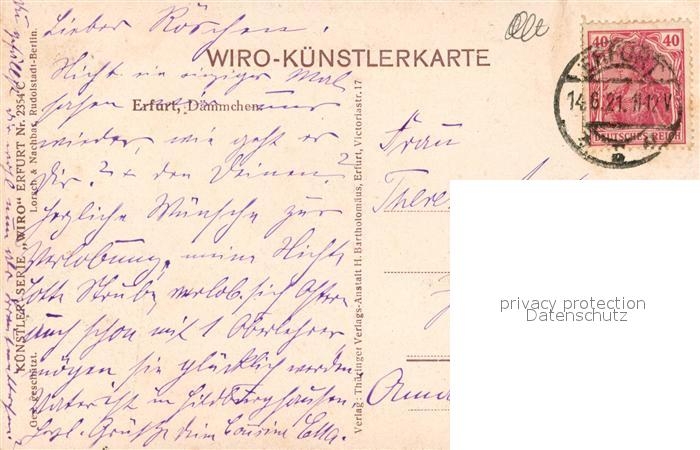 Lieber Röschen!
WIRO-KÜNSTLERKARTE
Nicht ein einziges Mal
sahen uns
Erfurt, Dämmchen.
wieder, wie geht es
Dir? + den Deinen?
Herzliche Wünsche zur
Verlobung, meine Nichte
Lotte Strube verlob. sich Ostern
auch schon mit 1 Oberlehrer
mögen sie glücklich werden
Vater ist in Hildburghausen.
Herzl. Grüße Deine Cousine Ella.
KÜNSTLER-SERIE „WIRO“ ERFURT Nr. 2354 C
Lorsch & Nachbar, Rudolstadt-Berlin.
Ges. geschützt.
Verlag: Thüringer Verlags-Anstalt H. Bartholomäus, Erfurt, Victoriastr. 17
Frau
There
40 40
DEUTSCHES REICH
ERFURT
14.6.21. 11-12 V
privacy protection
Datenschutz